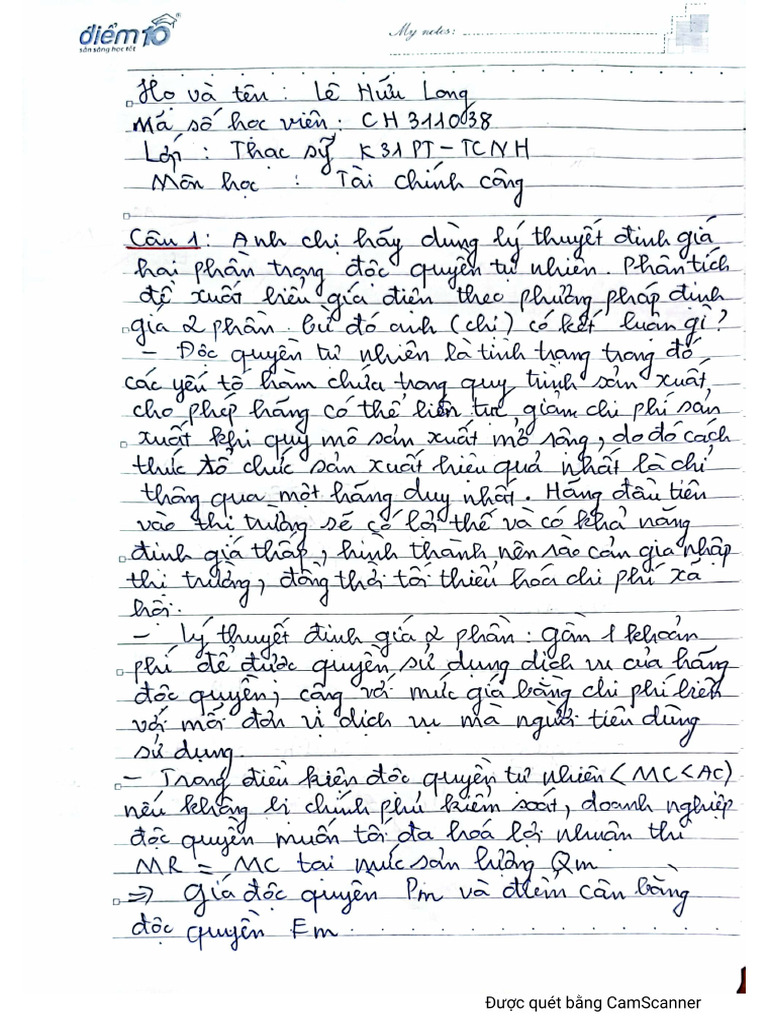 điểm10
sẵn sàng học tốt
My notes:
Họ và tên : Lê Hữu Long
Mã số học viên : CH311038
Lớp : Thạc sỹ K31PT-TCNH
Môn học : Tài chính công
Câu 1 : Anh chị hãy dùng lý thuyết định giá
hai phần trong độc quyền tự nhiên. Phân tích
đề xuất biểu giá điện theo phương pháp định
giá 2 phần. Từ đó anh (chị) có kết luận gì?
- Độc quyền tự nhiên là tình trạng trong đó
các yếu tố hàm chứa trong quy trình sản xuất
cho phép hãng có thể liên tục giảm chi phí sản
xuất khi quy mô sản xuất mở rộng, do đó cách
thức tổ chức sản xuất hiệu quả nhất là chỉ
thông qua một hãng duy nhất. Hãng đầu tiên
vào thị trường sẽ có lợi thế và có khả năng
định giá thấp, hình thành nên rào cản gia nhập
thị trường, đồng thời tối thiểu hoá chi phí xã
hội.
- Lý thuyết định giá 2 phần : gồm 1 khoản
phí để được quyền sử dụng dịch vụ của hãng
độc quyền, cộng với mức giá bằng chi phí biên
với mỗi đơn vị dịch vụ mà người tiêu dùng
sử dụng.
- Trong điều kiện độc quyền tự nhiên (MC<AC)
nếu không bị chính phủ kiểm soát, doanh nghiệp
độc quyền muốn tối đa hoá lợi nhuận thì
MR = MC tại mức sản lượng Qm
=> Giá độc quyền Pm và điểm cân bằng
độc quyền Em
Được quét bằng CamScanner